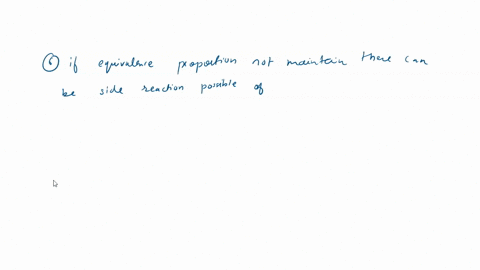 ⑥ if equivalence proportion not maintain there can
be side reaction possible of